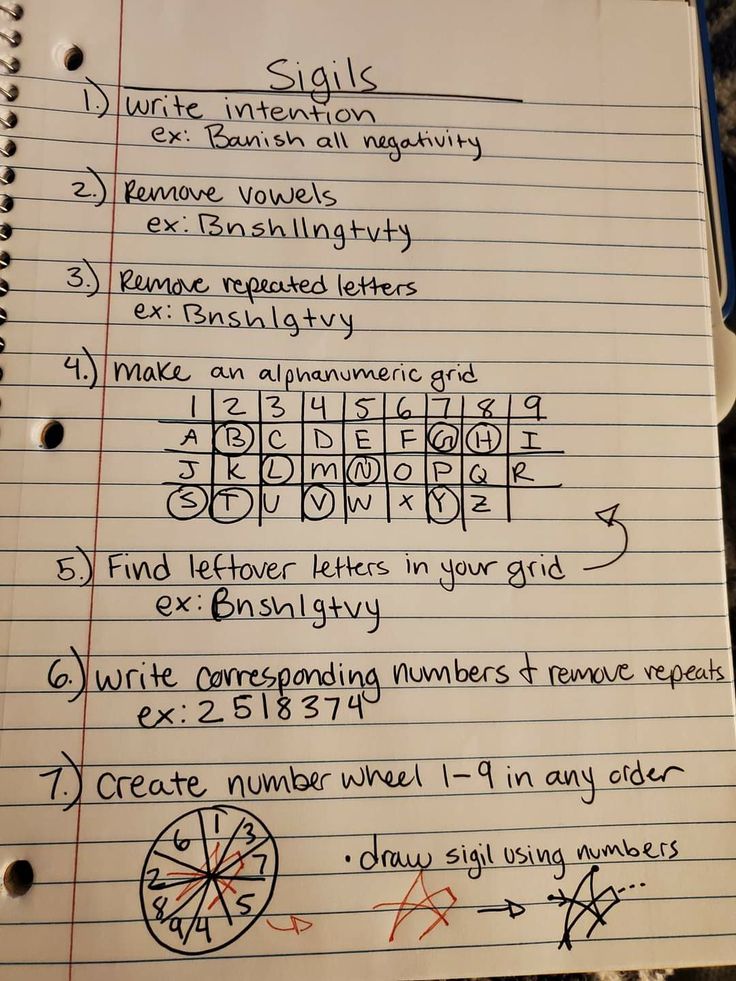 Sigils
1.) Write intention
ex: Banish all negativity
2.) Remove vowels
ex: Bnshllngtvty
3.) Remove repeated letters
ex: Bnshlgtvy
4.) make an alphanumeric grid
1 2 3 4 5 6 7 8 9
A B C D E F G H I
J K L M N O P Q R
S T U V W X Y Z
5.) Find leftover letters in your grid
ex: Bnshlgtvy
6.) Write corresponding numbers + remove repeats
ex: 2518374
7.) Create number wheel 1-9 in any order
1 3 7 5 4 9 8 2 6
• draw sigil using numbers